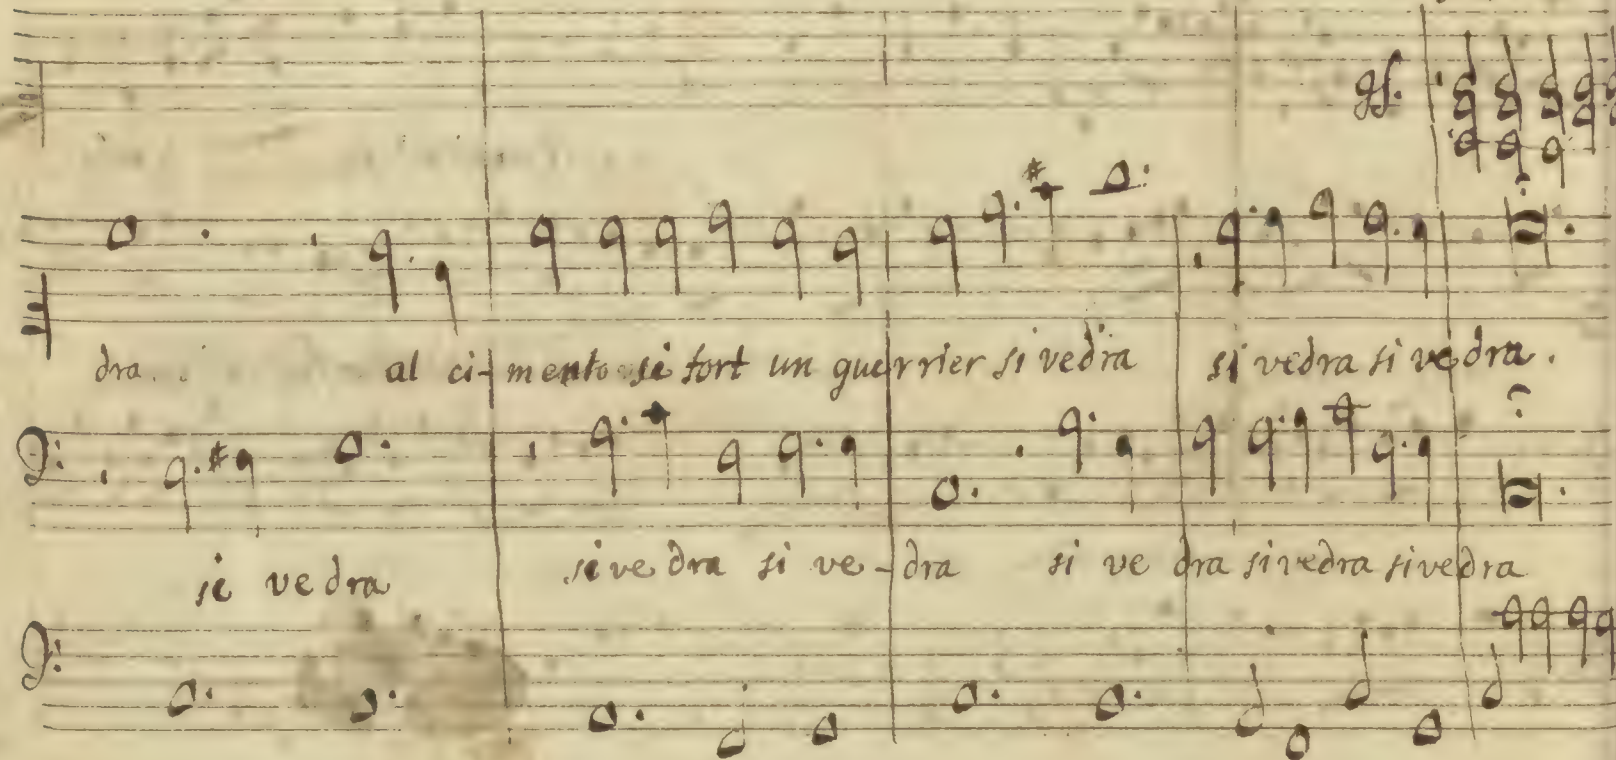 dra. al ci-mento si fort un guerrier si vedra si vedra si vedra.
si vedra si ve dra si ve-dra si ve dra si vedra si vedra